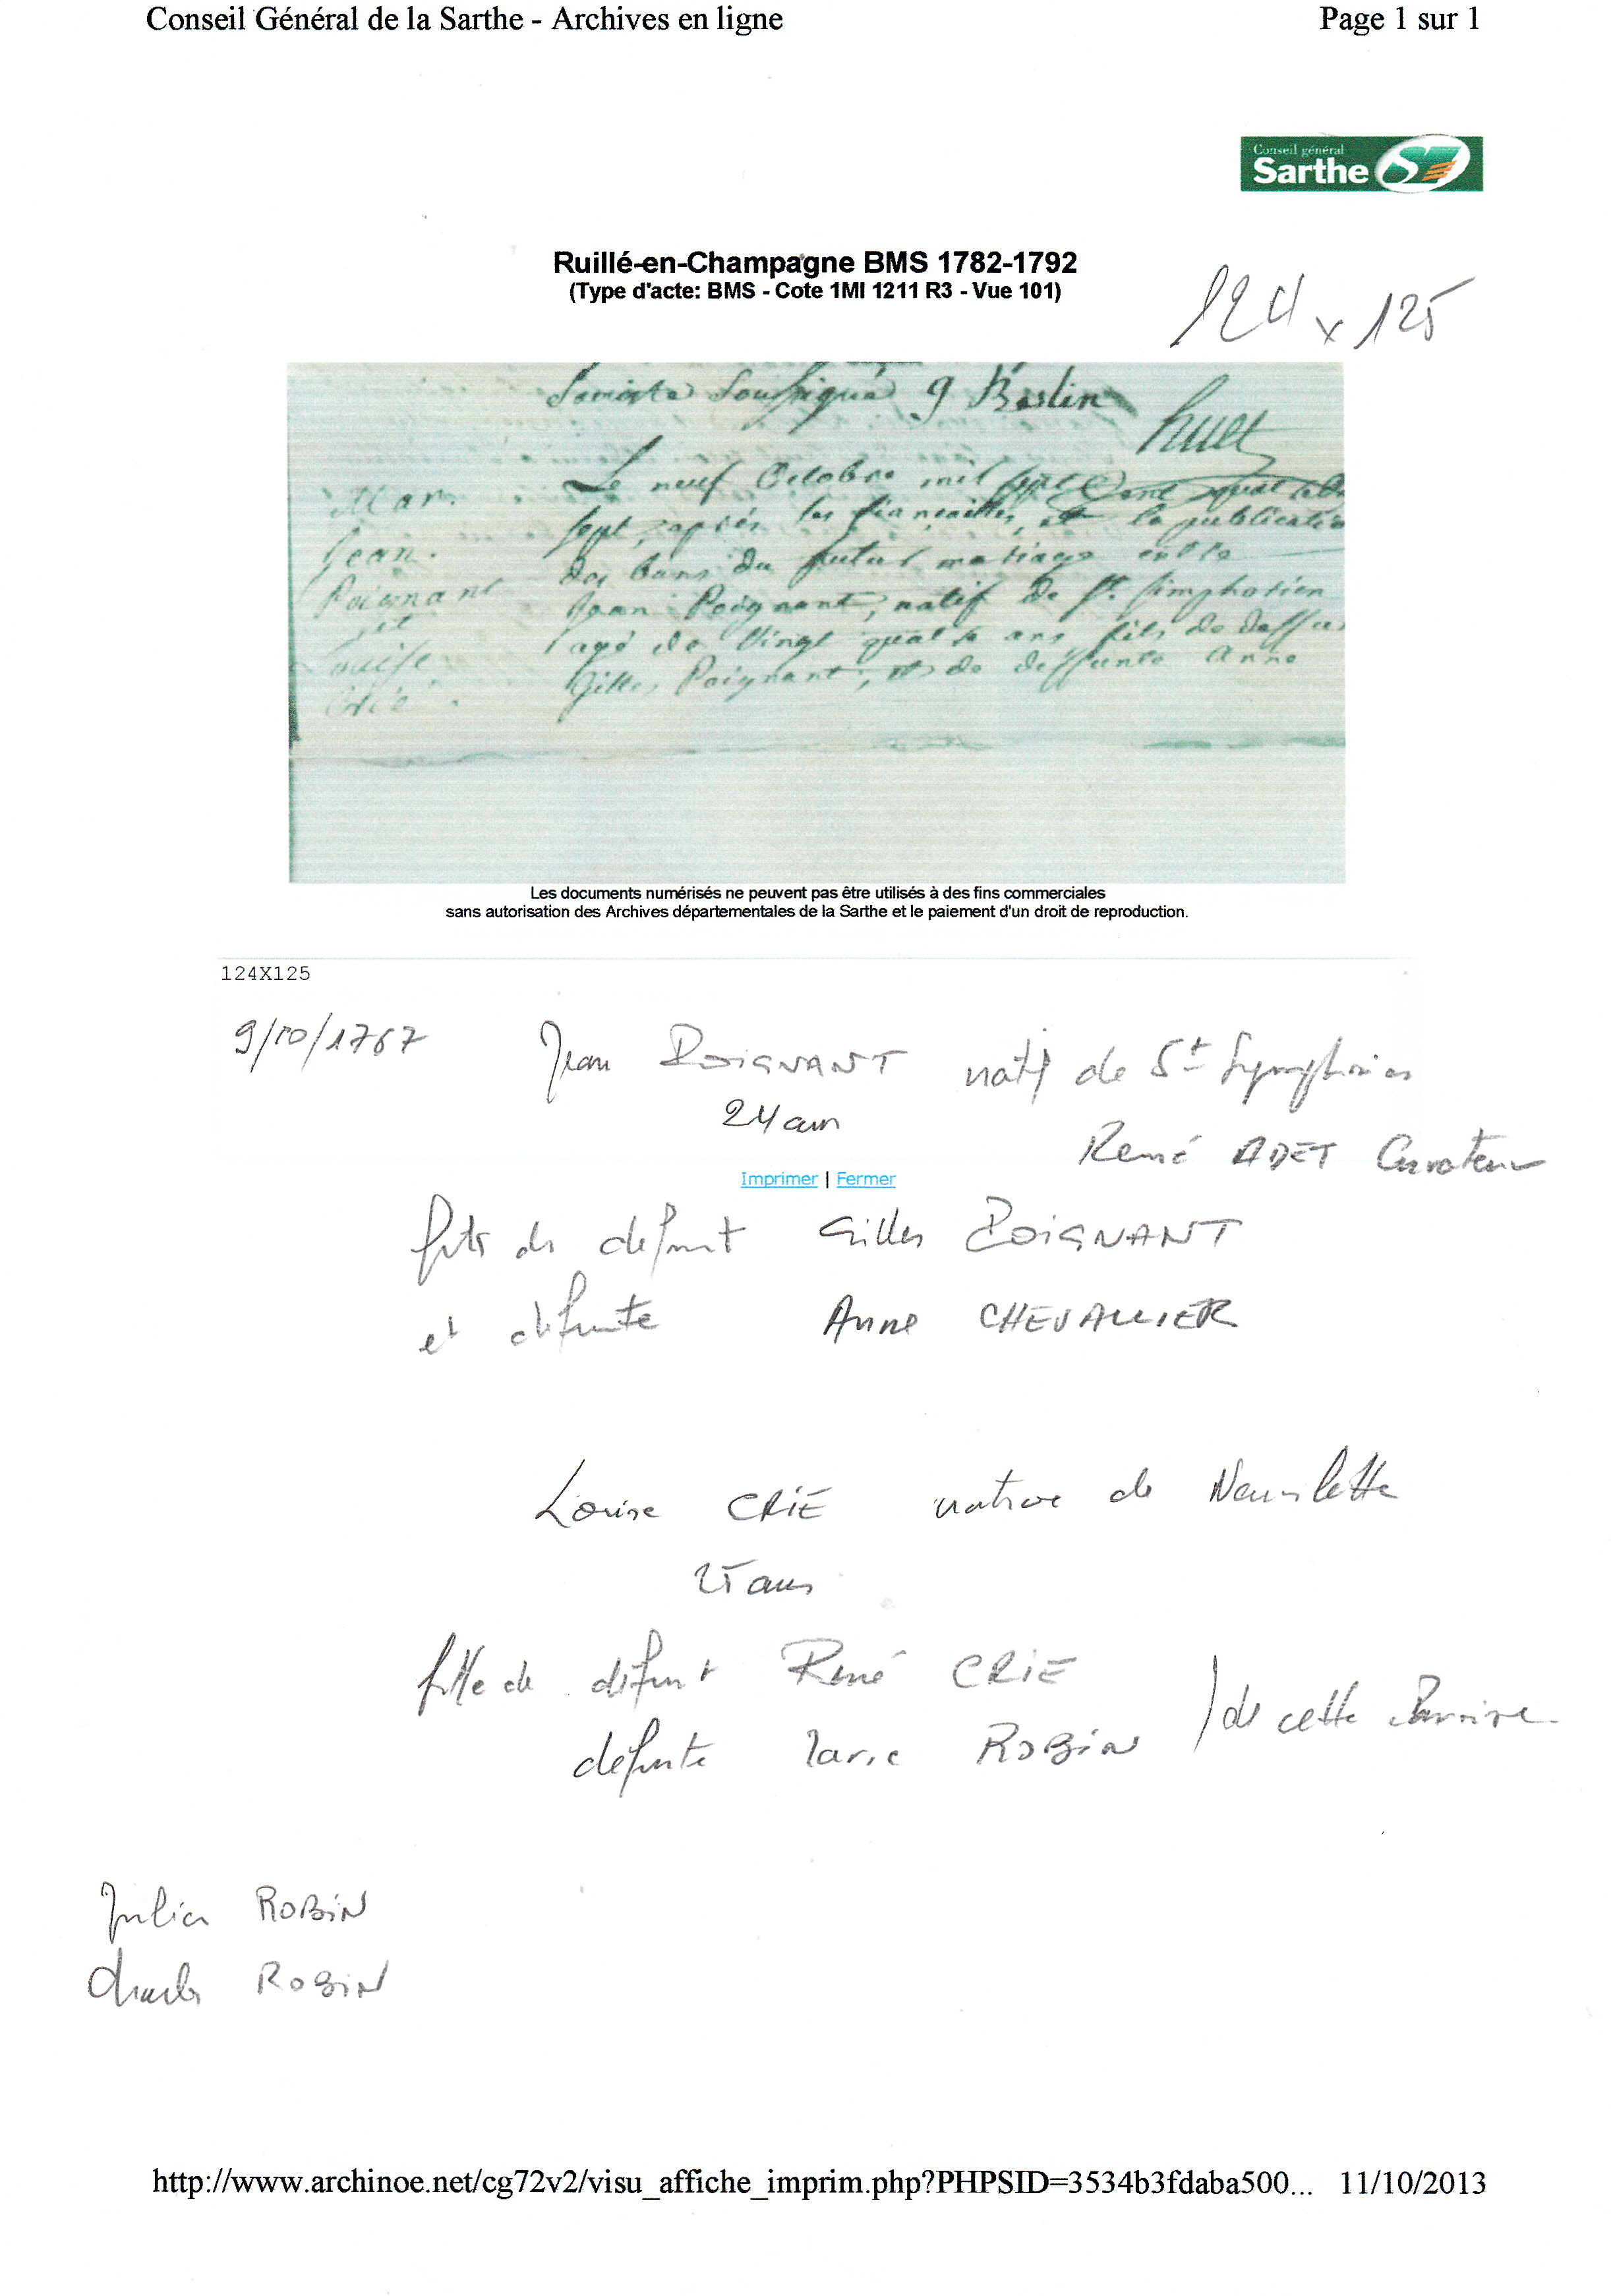 Conseil Général de la Sarthe - Archives en ligne
Page 1 sur 1
Conseil général
Sarthe
Ruillé-en-Champagne BMS 1782-1792
(Type d'acte: BMS - Cote 1MI 1211 R3 - Vue 101)
124 x 125
Soussigné g Beslin
huet
Mar.
Jean.
Poignant
et
Louise
Crié.
Le neuf Octobre mil sept Cent quatre
sept, après les fiançailles, et la publication
des bans du futur mariage entre
Jean Poignant, natif de St. Simphorien
agé de Vingt quatre ans fils de deffun
Gilles Poignant, et de deffunte Anne
Les documents numérisés ne peuvent pas être utilisés à des fins commerciales
sans autorisation des Archives départementales de la Sarthe et le paiement d'un droit de reproduction.
124X125
9/10/1787 Jean POIGNANT natif de St Symphorien
24 ans
René ADET Curateur
Imprimer | Fermer
fils de defunt Gilles POIGNANT
et defunte Anne CHEVALLIER
Louise CRIE native de Neuvilette
25 ans
fille de défunt René CRIE
defunte Marie ROBIN
de cette Paroisse.
Julien ROBIN
Charles ROBIN
http://www.archinoe.net/cg72v2/visu_affiche_imprim.php?PHPSID=3534b3fdaba500... 11/10/2013